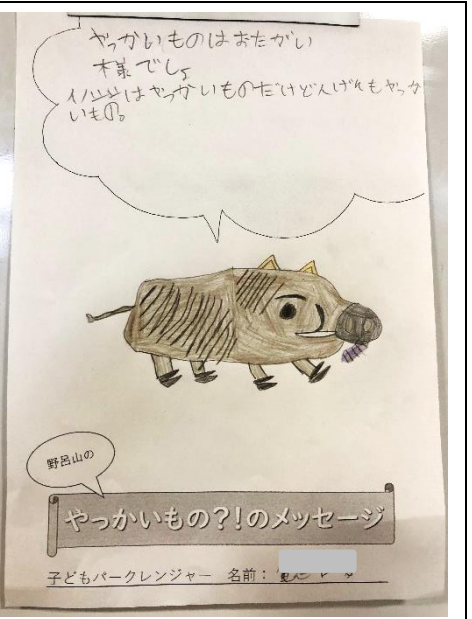 やっかいものはおたがい
様でしょ
イノシシはやっかいものだけどんげんもやっか
いもの。
野呂山の
やっかいもの?!のメッセージ
子どもパークレンジャー 名前: